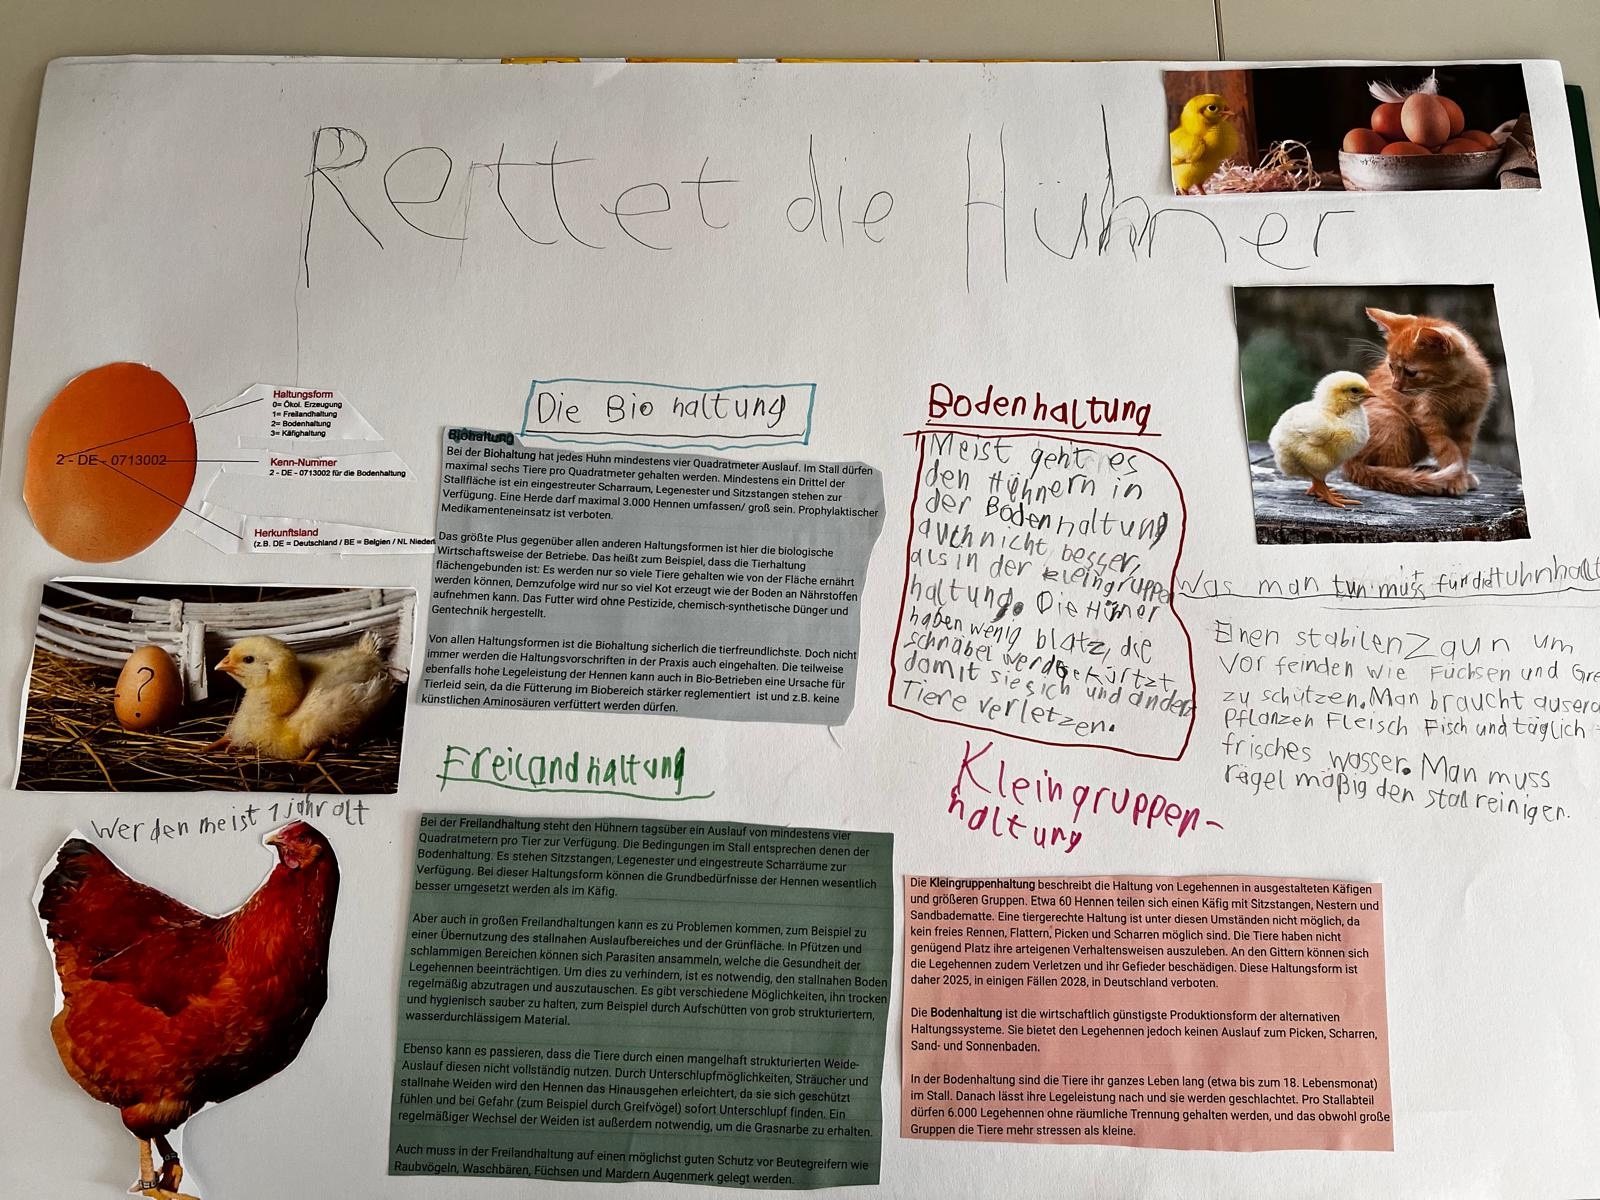 Rettet die Hühner
Haltungsform
0= Ökol. Erzeugung
1= Freilandhaltung
2= Bodenhaltung
3= Käfighaltung
2 - DE - 0713002
Kenn-Nummer
2 - DE - 0713002 für die Bodenhaltung
Herkunftsland
(z.B. DE = Deutschland / BE = Belgien / NL Niederl
?
Werden meist 1 jahr alt
Die Bio haltung
Biohaltung
Bei der Biohaltung hat jedes Huhn mindestens vier Quadratmeter Auslauf. Im Stall dürfen
maximal sechs Tiere pro Quadratmeter gehalten werden. Mindestens ein Drittel der
Stallfläche ist ein eingestreuter Scharraum, Legenester und Sitzstangen stehen zur
Verfügung. Eine Herde darf maximal 3.000 Hennen umfassen/ groß sein. Prophylaktischer
Medikamenteneinsatz ist verboten.
Das größte Plus gegenüber allen anderen Haltungsformen ist hier die biologische
Wirtschaftsweise der Betriebe. Das heißt zum Beispiel, dass die Tierhaltung
flächengebunden ist: Es werden nur so viele Tiere gehalten wie von der Fläche ernährt
werden können, Demzufolge wird nur so viel Kot erzeugt wie der Boden an Nährstoffen
aufnehmen kann. Das Futter wird ohne Pestizide, chemisch-synthetische Dünger und
Gentechnik hergestellt.
Von allen Haltungsformen ist die Biohaltung sicherlich die tierfreundlichste. Doch nicht
immer werden die Haltungsvorschriften in der Praxis auch eingehalten. Die teilweise
ebenfalls hohe Legeleistung der Hennen kann auch in Bio-Betrieben eine Ursache für
Tierleid sein, da die Fütterung im Biobereich stärker reglementiert ist und z.B. keine
künstlichen Aminosäuren verfüttert werden dürfen.
Freilandhaltung
Bei der Freilandhaltung steht den Hühnern tagsüber ein Auslauf von mindestens vier
Quadratmetern pro Tier zur Verfügung. Die Bedingungen im Stall entsprechen denen der
Bodenhaltung. Es stehen Sitzstangen, Legenester und eingestreute Scharräume zur
Verfügung. Bei dieser Haltungsform können die Grundbedürfnisse der Hennen wesentlich
besser umgesetzt werden als im Käfig.
Aber auch in großen Freilandhaltungen kann es zu Problemen kommen, zum Beispiel zu
einer Übernutzung des stallnahen Auslaufbereiches und der Grünfläche. In Pfützen und
schlammigen Bereichen können sich Parasiten ansammeln, welche die Gesundheit der
Legehennen beeinträchtigen. Um dies zu verhindern, ist es notwendig, den stallnahen Boden
regelmäßig abzutragen und auszutauschen. Es gibt verschiedene Möglichkeiten, ihn trocken
und hygienisch sauber zu halten, zum Beispiel durch Aufschütten von grob strukturiertem,
wasserdurchlässigem Material.
Ebenso kann es passieren, dass die Tiere durch einen mangelhaft strukturierten Weide-
Auslauf diesen nicht vollständig nutzen. Durch Unterschlupfmöglichkeiten, Sträucher und
stallnahe Weiden wird den Hennen das Hinausgehen erleichtert, da sie sich geschützt
fühlen und bei Gefahr (zum Beispiel durch Greifvögel) sofort Unterschlupf finden. Ein
regelmäßiger Wechsel der Weiden ist außerdem notwendig, um die Grasnarbe zu erhalten.
Auch muss in der Freilandhaltung auf einen möglichst guten Schutz vor Beutegreifern wie
Raubvögeln, Waschbären, Füchsen und Mardern Augenmerk gelegt werden.
Bodenhaltung
Meist geht es
den Hühnern in
der Bodenhaltung
auch nicht besser,
als in der kleingruppen
haltung. Die Hüner
haben wenig blatz, die
schnäbel werde gekürtzt
damit sie sich und andere
Tiere verletzen.
Kleingruppen-
haltung
Die Kleingruppenhaltung beschreibt die Haltung von Legehennen in ausgestalteten Käfigen
und größeren Gruppen. Etwa 60 Hennen teilen sich einen Käfig mit Sitzstangen, Nestern und
Sandbadematte. Eine tiergerechte Haltung ist unter diesen Umständen nicht möglich, da
kein freies Rennen, Flattern, Picken und Scharren möglich sind. Die Tiere haben nicht
genügend Platz ihre arteigenen Verhaltensweisen auszuleben. An den Gittern können sich
die Legehennen zudem Verletzen und ihr Gefieder beschädigen. Diese Haltungsform ist
daher 2025, in einigen Fällen 2028, in Deutschland verboten.
Die Bodenhaltung ist die wirtschaftlich günstigste Produktionsform der alternativen
Haltungssysteme. Sie bietet den Legehennen jedoch keinen Auslauf zum Picken, Scharren,
Sand- und Sonnenbaden.
In der Bodenhaltung sind die Tiere ihr ganzes Leben lang (etwa bis zum 18. Lebensmonat)
im Stall. Danach lässt ihre Legeleistung nach und sie werden geschlachtet. Pro Stallabteil
dürfen 6.000 Legehennen ohne räumliche Trennung gehalten werden, und das obwohl große
Gruppen die Tiere mehr stressen als kleine.
Was man tun muss für die Huhnhalt
Einen stabilen Zaun um
vor feinden wie Füchsen und Gre
zu schützen. Man braucht auserd
Pflanzen Fleisch Fisch und täglich
frisches wasser. Man muss
regel mäßig den stall reinigen.